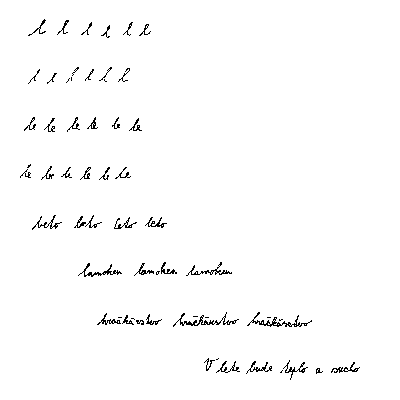 l l l l l l
l l l l l l
le le le le le le
le le le le le le
leto leto leto leto
hračkárstvo hračkárstvo hračkárstvo
V lete bude teplo a sucho